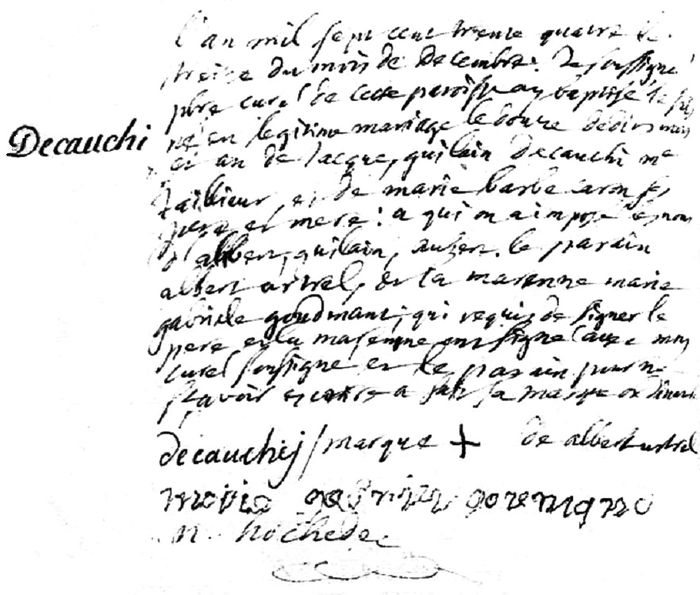 Decauchi
l'an mil sept cent trente quatre le
treize du mois de decembre. Je soussigné
pbre curé de cette paroisse ay baptisé le fils
né en legitime mariage le douze dudit mois
et an de Jacque, guilain Decauchi me
tailleur, et de marie barbe
pere et mere: a qui on a imposé les noms
d'albert, guilain, le parain
albert ursrel, et la marenne marie
gabriele goudmant, qui requis de signer le
pere et la marenne ont signé avec moy
curé soussigné et le parain pour ne
scavoir ecrire a fait sa marque ordinaire
decauchej / marque + de albert ursrel
marie
n. hochedez